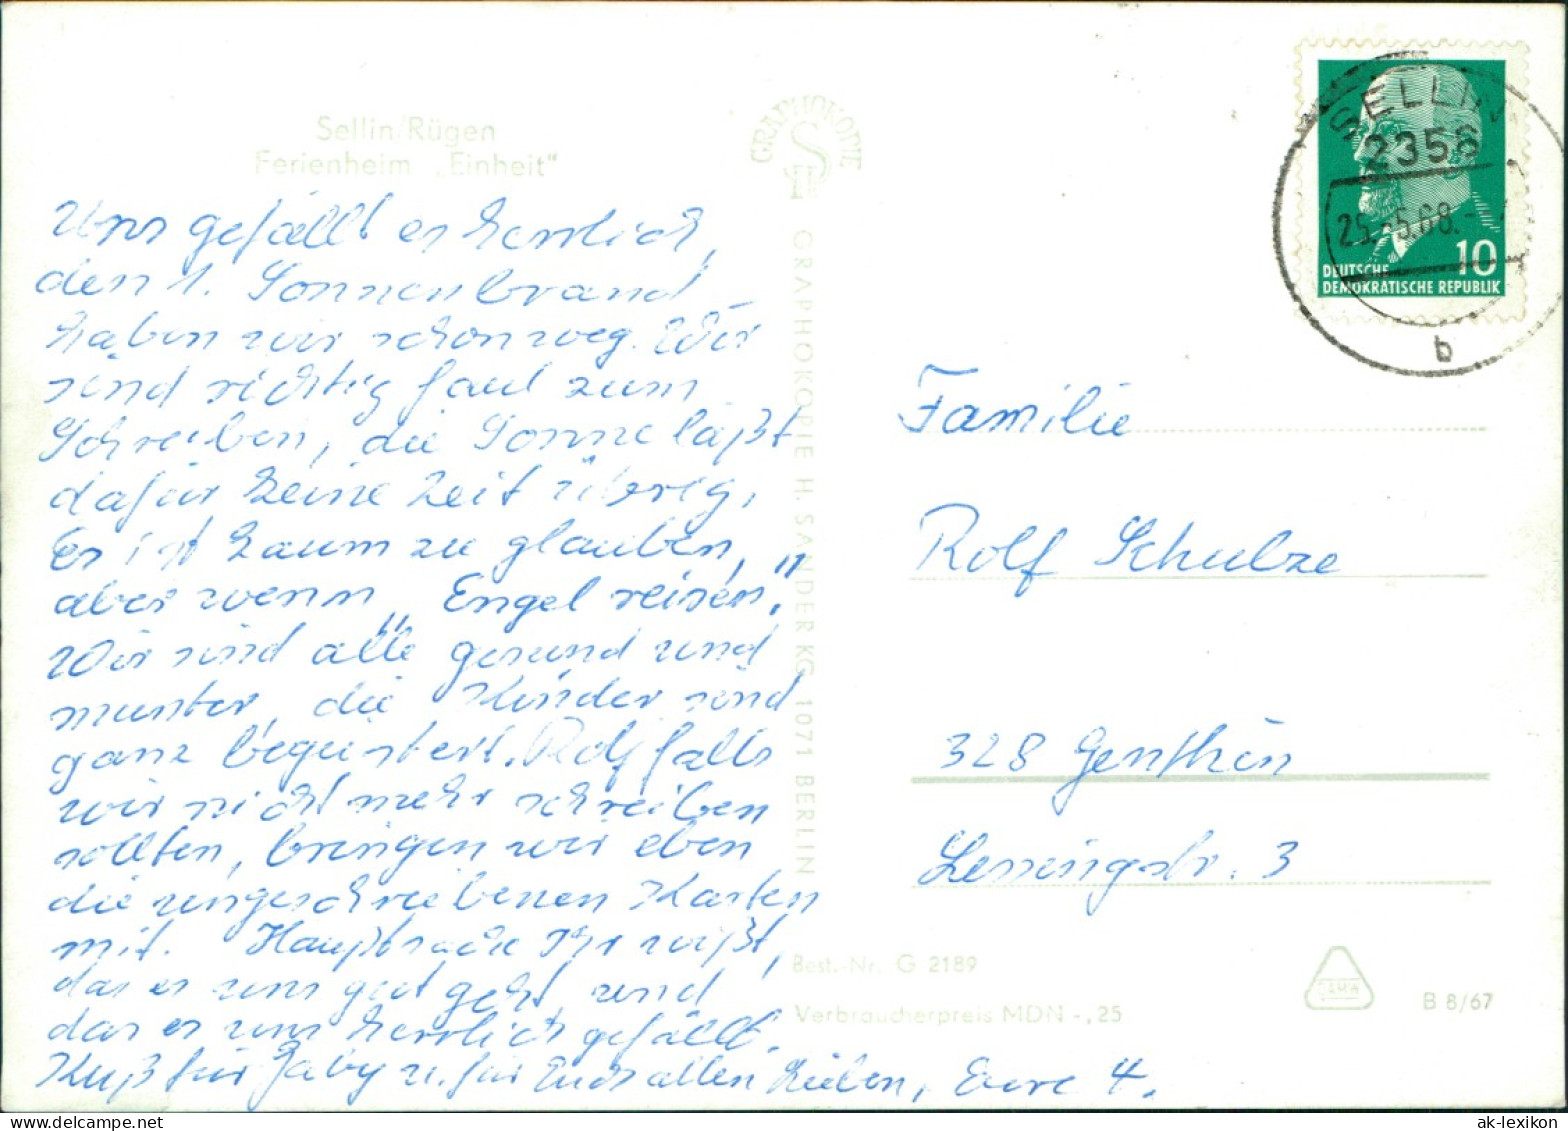 Sellin/Rügen
Ferienheim „Einheit"
Uns gefällt es herrlich,
den 1. Sonnenbrand
haben wir schon weg. Wir
sind richtig faul zum
Schreiben, die Sonne läßt
dafür keine Zeit übrig.
Es ist kaum zu glauben,
aber wenn „Engel reisen"
Wir sind alle gesund und
munter, die Kinder sind
ganz begeistert. Rolf falls
wir nicht mehr schreiben
sollten, bringen wir eben
die ungeschriebenen Karten
mit. Hauptsache Ihr wißt,
das es uns gut geht und
das es uns herrlich gefällt.
Kuß für Gaby u. für Euch allen Lieben, Eure 4.
GRAPHOKOPIE
GRAPHOKOPIE H. SANDER KG 1071 BERLIN
SELLIN
2356
25.-5.68.-
b
10
DEUTSCHE
DEMOKRATISCHE REPUBLIK
Familie
Rolf Schulze
328 Genthin
Lessingstr. 3
Best.-Nr. G 2189
Verbraucherpreis MDN -,25
B 8/67
ak-lexikon